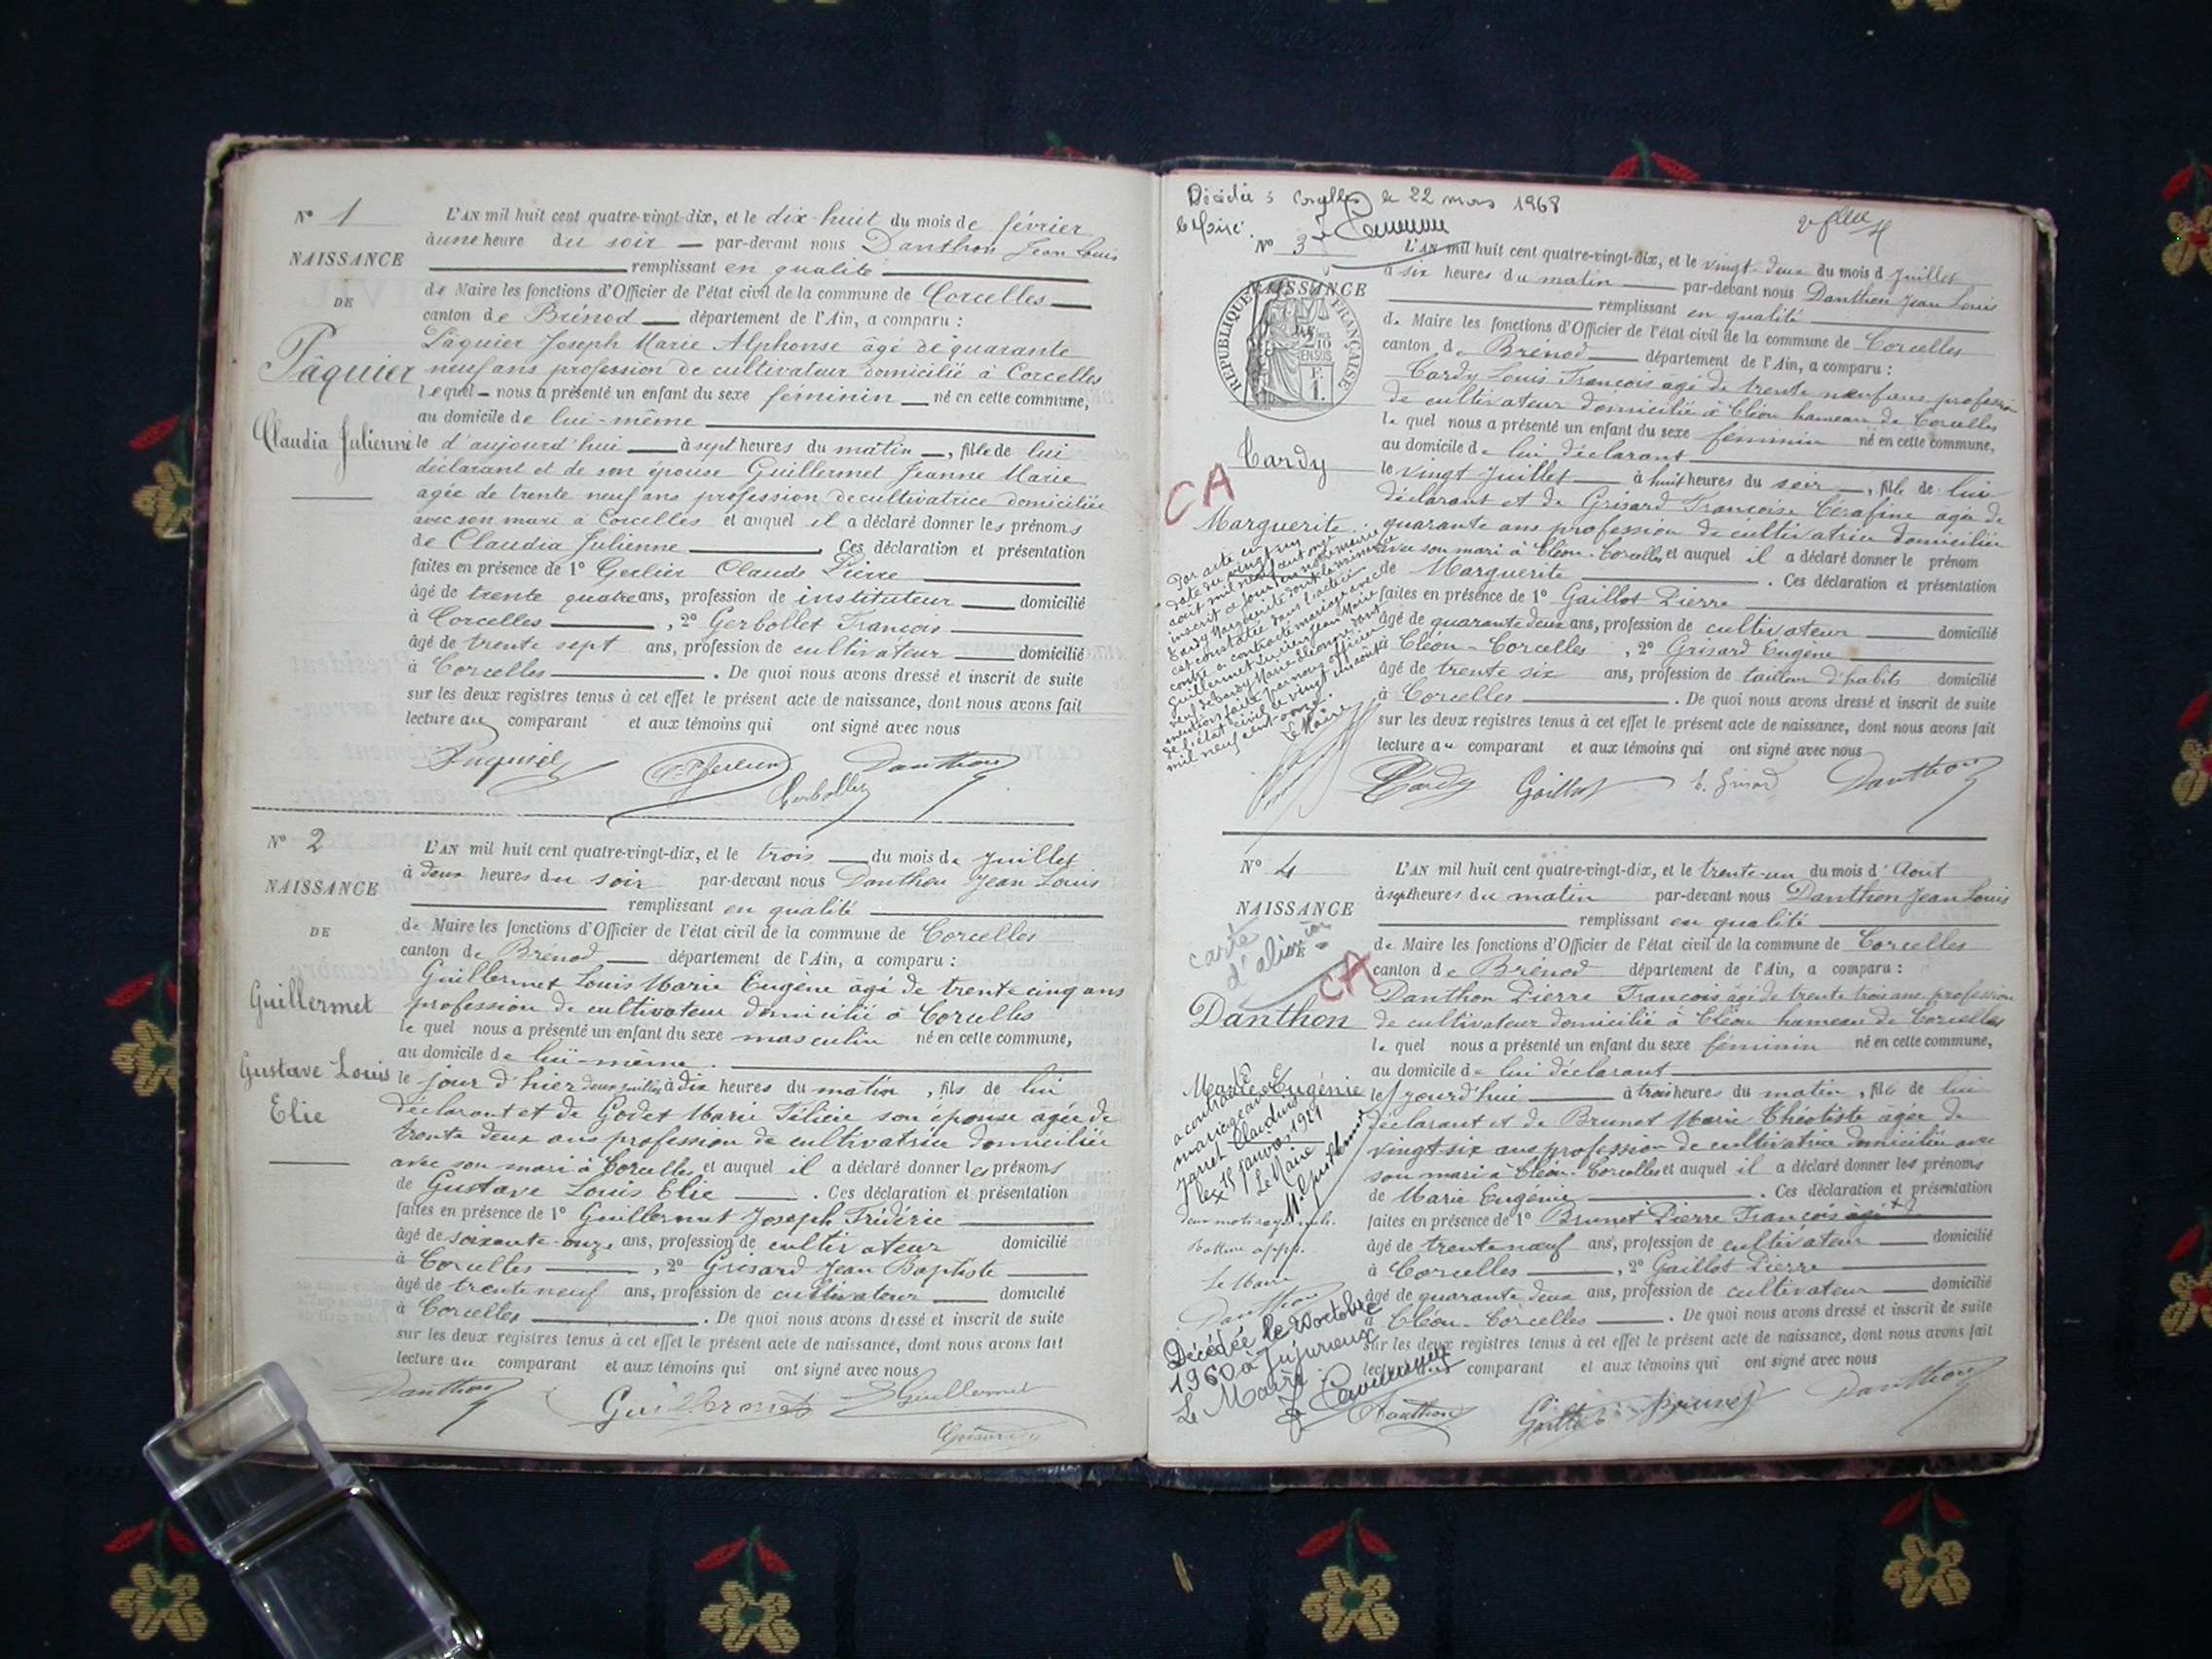 N° 1
NAISSANCE
DE
Pâquier
Claudia Julienne
L'AN mil huit cent quatre-vingt-dix, et le dix-huit du mois de février
à une heure du soir par-devant nous Danthon Jean Louis
remplissant en qualité
de Maire les fonctions d'Officier de l'état civil de la commune de Corcelles
canton de Brénod département de l'Ain, a comparu :
Pâquier Joseph Marie Alphonse âgé de quarante
neuf ans profession de cultivateur domicilié à Corcelles
lequel nous a présenté un enfant du sexe féminin né en cette commune,
au domicile de lui-même
le d'aujourd'hui à sept heures du matin, fille de lui
déclarant et de son épouse Guillermet Jeanne Marie
agée de trente neuf ans profession de cultivatrice domiciliée
avec son mari à Corcelles et auquel il a déclaré donner les prénoms
de Claudia Julienne. Ces déclaration et présentation
faites en présence de 1° Gerlier Claude Pierre
âgé de trente quatre ans, profession de instituteur domicilié
à Corcelles, 2° Gerbollet François
âgé de trente sept ans, profession de cultivateur domicilié
à Corcelles. De quoi nous avons dressé et inscrit de suite
sur les deux registres tenus à cet effet le présent acte de naissance, dont nous avons fait
lecture au comparant et aux témoins qui ont signé avec nous
Danthon
Gerbollet
N° 2
NAISSANCE
DE
Guillermet
Gustave Louis
Elie
L'AN mil huit cent quatre-vingt-dix, et le trois du mois de Juillet
à deux heures du soir par-devant nous Danthon Jean Louis
remplissant en qualité
de Maire les fonctions d'Officier de l'état civil de la commune de Corcelles
canton de Brénod département de l'Ain, a comparu :
Guillermet Louis Marie Eugène âgé de trente cinq ans
profession de cultivateur domicilié à Corcelles
le quel nous a présenté un enfant du sexe masculin né en cette commune,
au domicile de lui-même
le jour d'hier deux juillet à dix heures du matin, fils de lui
déclarant et de Godet Marie Félicie son épouse agée de
trente deux ans profession de cultivatrice domiciliée
avec son mari à Corcelles et auquel il a déclaré donner les prénoms
de Gustave Louis Elie. Ces déclaration et présentation
faites en présence de 1° Guillermet Joseph Frédéric
âgé de soixante-onze ans, profession de cultivateur domicilié
à Corcelles, 2° Grisard Jean Baptiste
âgé de trente neuf ans, profession de cultivateur domicilié
à Corcelles. De quoi nous avons dressé et inscrit de suite
sur les deux registres tenus à cet effet le présent acte de naissance, dont nous avons fait
lecture au comparant et aux témoins qui ont signé avec nous
Danthon Guillermet Guillermet
Grisard
Décédée à Corcelles le 22 mars 1968
le Maire
N° 3
NAISSANCE
RÉPUBLIQUE FRANÇAISE
2/10 EN SUS
Cardy
CA
Marguerite
Par acte en
date du vingt un
aout mil neuf cent onze
inscrit ce jour en notre mairie
Cardy Marguerite dont la naissance
est constatée dans l'acte ci
contre a contracté mariage avec
Guillermet Lucien Jean Marie
mention faite par nous officier
de l'état civil le vingt un août
mil neuf cent onze.
Le Maire
L'AN mil huit cent quatre-vingt-dix, et le vingt-deux du mois d Juillet
à six heures du matin par-devant nous Danthon Jean Louis
remplissant en qualité
de Maire les fonctions d'Officier de l'état civil de la commune de Corcelles
canton de Brénod département de l'Ain, a comparu :
Cardy Louis François âgé de trente neuf ans profession
de cultivateur domicilié à Cléon hameau de Corcelles
le quel nous a présenté un enfant du sexe féminin né en cette commune,
au domicile de lui déclarant
le vingt Juillet à huit heures du soir, fille de lui
déclarant et de Grisard Françoise Cérafine agée de
quarante ans profession de cultivatrice domiciliée
avec son mari à Cléon-Corcelles et auquel il a déclaré donner le prénom
de Marguerite. Ces déclaration et présentation
faites en présence de 1° Gaillot Pierre
âgé de quarante deux ans, profession de cultivateur domicilié
à Cléon-Corcelles, 2° Grisard Eugène
âgé de trente six ans, profession de tailleur d'habits domicilié
à Corcelles. De quoi nous avons dressé et inscrit de suite
sur les deux registres tenus à cet effet le présent acte de naissance, dont nous avons fait
lecture au comparant et aux témoins qui ont signé avec nous
Cardy Gaillot E. Grisard Danthon
N° 4
NAISSANCE
DE
carte
d'alim ion
CA
Danthon
Marie Eugénie
a contracté
mariage avec
Jarret Claudius
le 15 janvier 1921
Le Maire
deux mots rayés nuls.
Le Maire
Danthon
Décédée le 20 octobre
1960 à Jujurieux
Le Maire
L'AN mil huit cent quatre-vingt-dix, et le trente-un du mois d'Aout
à sept heures du matin par-devant nous Danthon Jean Louis
remplissant en qualité
de Maire les fonctions d'Officier de l'état civil de la commune de Corcelles
canton de Brénod département de l'Ain, a comparu :
Danthon Pierre François âgé de trente trois ans profession
de cultivateur domicilié à Cléon hameau de Corcelles
le quel nous a présenté un enfant du sexe féminin né en cette commune,
au domicile de lui déclarant
le jourd'hui à trois heures du matin, fille de lui
déclarant et de Brunet Marie Théotiste agée de
vingt-six ans profession de cultivatrice domiciliée avec
son mari à Cléon-Corcelles et auquel il a déclaré donner les prénoms
de Marie Eugénie. Ces déclaration et présentation
faites en présence de 1° Brunet Pierre François âgé d
âgé de trente neuf ans, profession de cultivateur domicilié
à Corcelles, 2° Gaillot Pierre
âgé de quarante deux ans, profession de cultivateur domicilié
à Cléon-Corcelles. De quoi nous avons dressé et inscrit de suite
sur les deux registres tenus à cet effet le présent acte de naissance, dont nous avons fait
lecture comparant et aux témoins qui ont signé avec nous
Danthon Gaillot Brunet Danthon